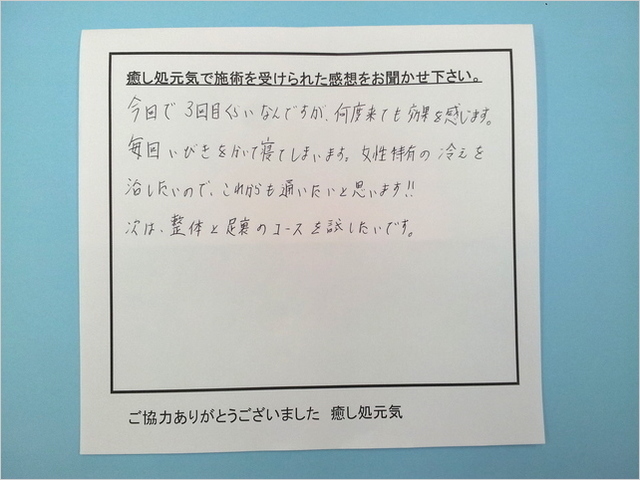 癒し処元気で施術を受けられた感想をお聞かせ下さい。
今日で3回目くらいなんですが、何度来ても効果を感じます。
毎回いびきをかいて寝てしまいます。女性特有の冷えを
治したいので、これからも通いたいと思います!!
次は、整体と足裏のコースを試したいです。
ご協力ありがとうございました 癒し処元気